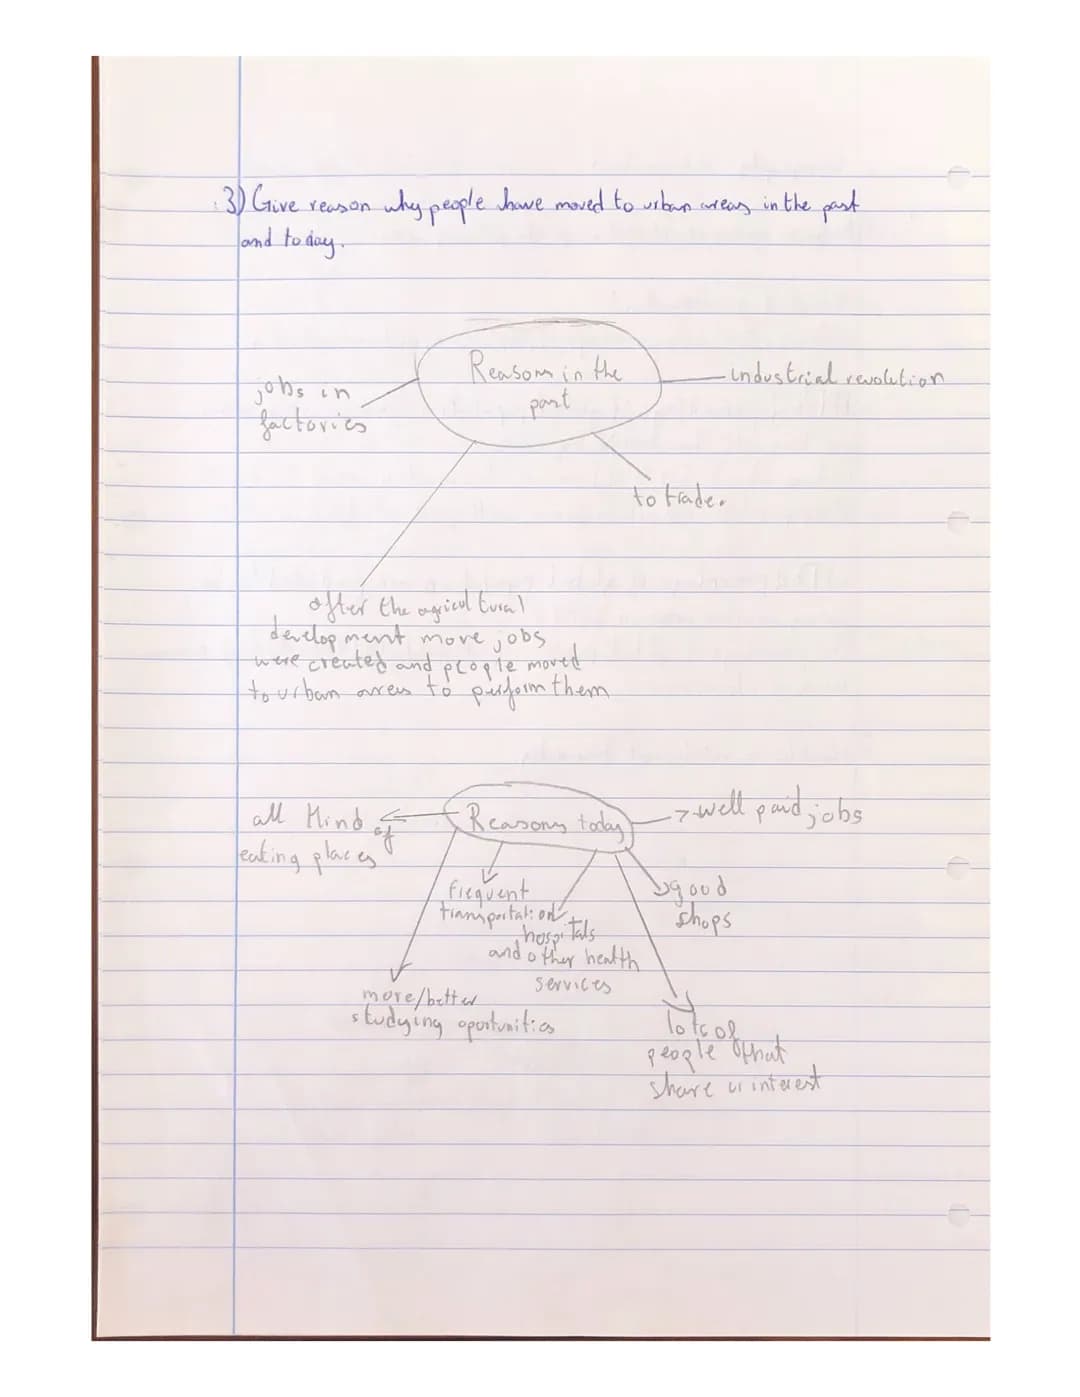 3) Give reason why people have moved to urban areas in the past
and today.
Reasons in the
past
industrial revolution
jobs in
factories
to trade.
after the agricultural
development more jobs
were created and people moved
to urban areas to perform them
Reasons today
well paid jobs
all kind of
eating places
good
shops
frequent
transportation
hospitals
and other health
services
more/better
studying oportunities
lots of
people that
share ur interest